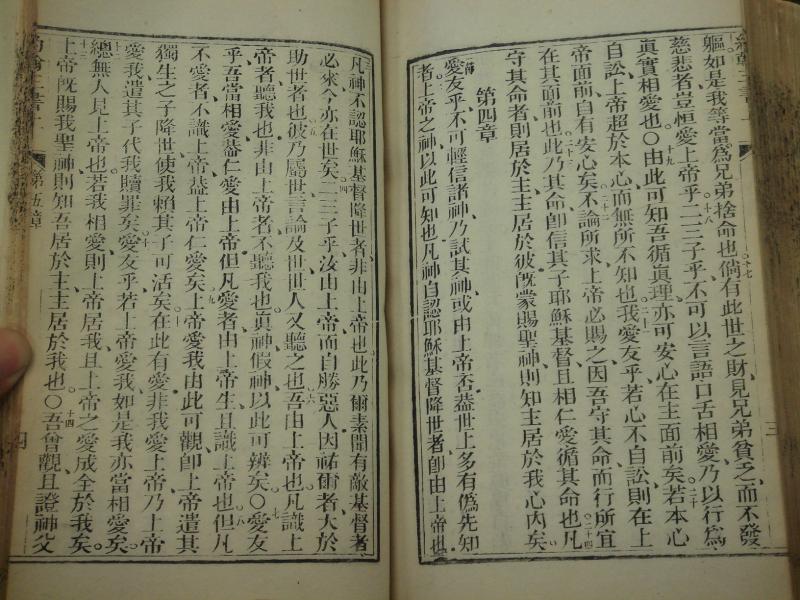 軀如是我等當爲兄弟捨命也倘有此世之財見兄弟貧乏而不發
慈悲者豈恒愛上帝乎二三子乎不可以言語口舌相愛乃以行爲
眞實相愛也〇由此可知吾循眞理亦可安心在主面前矣若本心
自訟上帝超於本心而無所不知也我愛友乎若心不自訟則在上
帝面前自有安心矣不論所求上帝必賜之因吾守其命而行所宜
在其面前也此乃其命卽信其子耶穌基督且相仁愛循其命也凡
守其命者則居於主主居於彼旣蒙賜聖神則知主居於我心內矣
第四章
愛友乎不可輕信諸神乃試其神或由上帝否葢世上多有僞先知
者上帝之神以此可知也凡神自認耶穌基督降世者卽由上帝也
三
凡神不認耶穌基督降世者非由上帝也此乃爾素聞有敵基督者
必來今亦在世矣二三子乎汝由上帝而自勝惡人因祐爾者大於
助世者也彼乃屬世言論及世世人又聽之也吾由上帝也凡識上
帝者聽我也非由上帝者不聽我也眞神假神以此可辨矣〇愛友
乎吾當相愛葢仁愛由上帝但凡愛者由上帝生且識上帝也但凡
不愛者不識上帝葢上帝仁愛矣上帝愛我由此可觀卽上帝遣其
獨生之子降世使我賴其子可活矣在此有愛非我愛上帝乃上帝
愛我遣其子代我贖罪矣愛友乎若上帝愛我如是我亦當相愛矣
總無人見上帝也若我相愛則上帝居我且上帝之愛成全於我矣
上帝旣賜我聖神則知吾居於主主居於我也〇吾曾觀且證神父
第五章
四